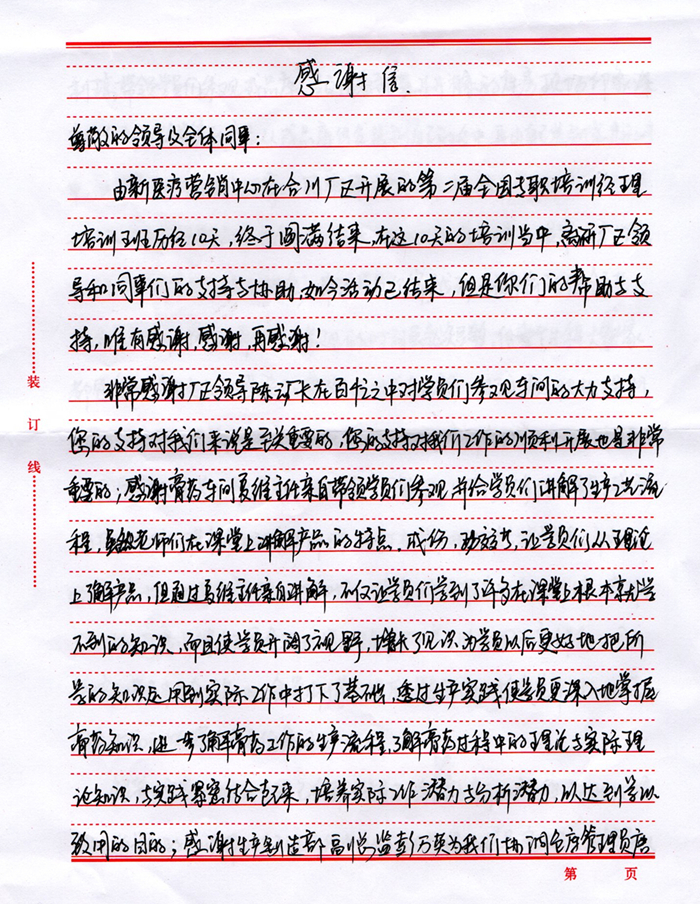 感谢信.
尊敬的领导及全体同事:
由新医疗营销中心在合川厂区开展的第二届全国专职培训经理
培训班历经10天,终于圆满结束,在这10天的培训当中,离不开厂区领
导和同事们的支持与协助,如今活动已结束,但是你们的帮助与支
持,唯有感谢,感谢,再感谢!
非常感谢厂区领导陈厂长在百忙之中对学员们参观车间的大力支持,
您的支持对我们来说是至关重要的,您的支持对我们工作的顺利开展也是非常
重要的;感谢膏药车间夏维主任亲自带领学员们参观,并给学员们讲解了生产工艺流
程,虽然老师们在课堂上讲解产品的特点、成份、功效等,让学员们从理论
上了解产品,但通过夏维主任亲自讲解,不仅让学员们学到了许多在课堂上根本学
不到的知识,而且使学员开阔了视野,增长了见识,为学员以后更好地把所
学的知识运用到实际工作中打下了基础,透过生产实践使学员更深入地掌握
膏药知识,进一步了解膏药工作的生产流程,了解膏药过程中的理论与实际理
论知识,与实践紧密结合起来,培养实际工作潜力与分析潜力,以达到学以
致用的目的;感谢生产制造部副总监彭万英为我们协调仓库管理员唐
装订线
第 页